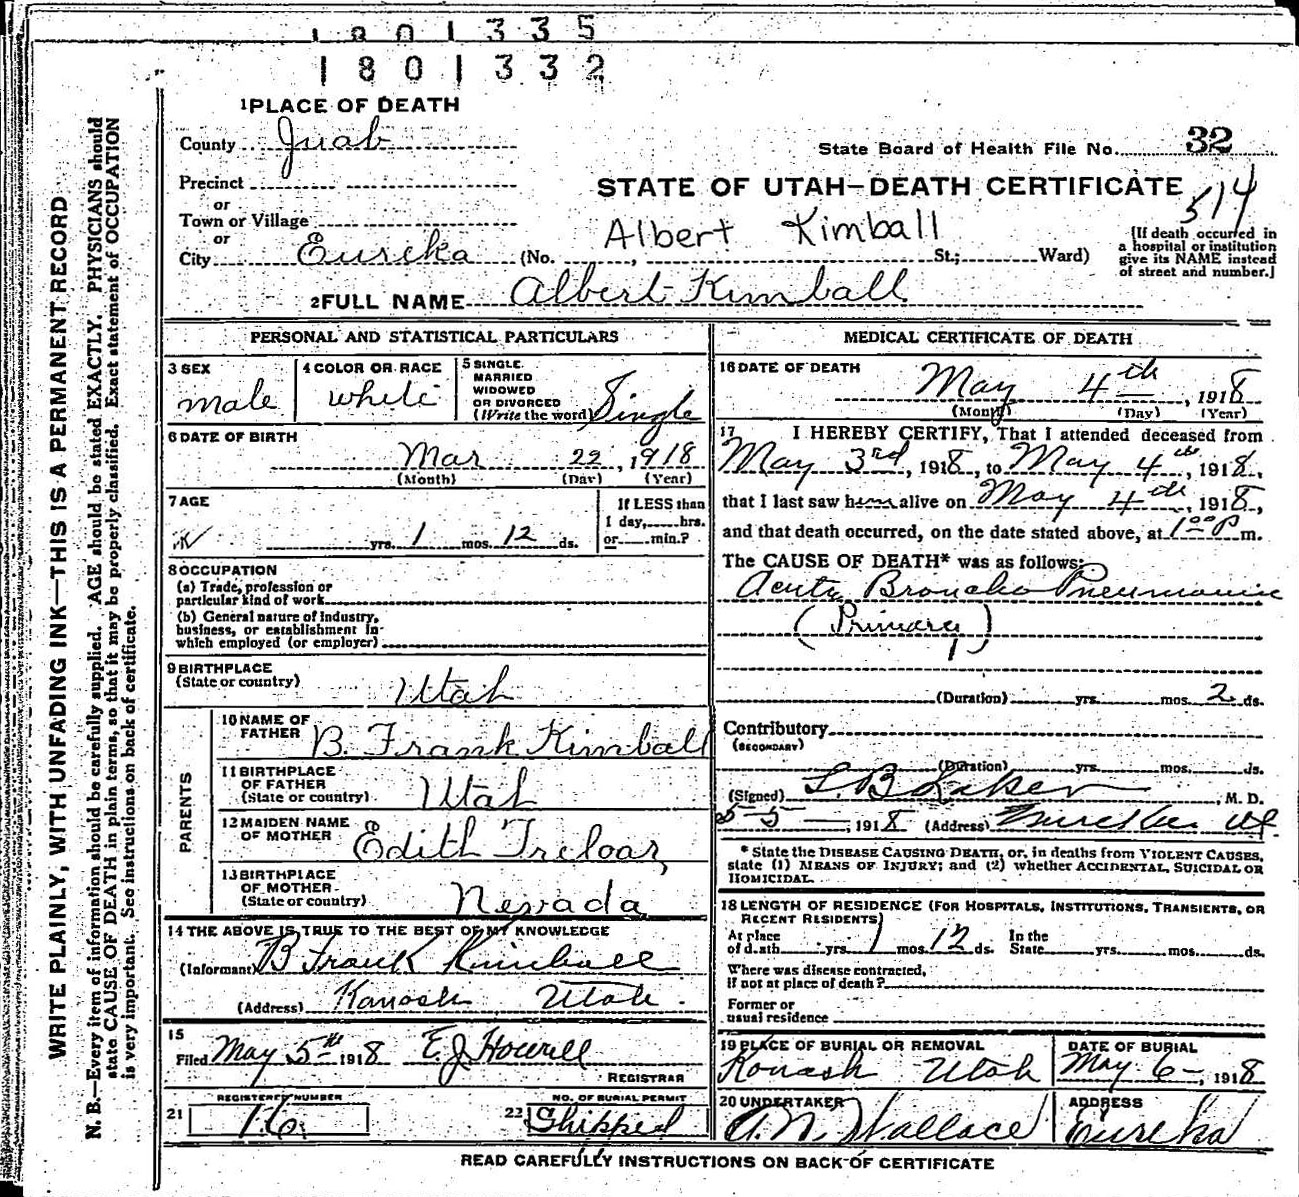 1801335
1801332
1 PLACE OF DEATH
County Juab
State Board of Health File No. 32
Precinct
STATE OF UTAH—DEATH CERTIFICATE
514
or
Town or Village
or
Albert Kimball
City Eureka (No. , St.; Ward)
[If death occurred in a hospital or institution give its NAME instead of street and number.]
2 FULL NAME Albert Kimball
PERSONAL AND STATISTICAL PARTICULARS
3 SEX
male
4 COLOR OR RACE
white
5 SINGLE
MARRIED
WIDOWED
OR DIVORCED
(Write the word) Single
6 DATE OF BIRTH
Mar 22, 1918
(Month) (Day) (Year)
7 AGE
yrs. 1 mos. 12 ds.
If LESS than
1 day, hrs.
or min.?
8 OCCUPATION
(a) Trade, profession or
particular kind of work
(b) General nature of industry,
business, or establishment in
which employed (or employer)
9 BIRTHPLACE
(State or country)
Utah
PARENTS
10 NAME OF
FATHER B. Frank Kimball
11 BIRTHPLACE
OF FATHER
(State or country) Utah
12 MAIDEN NAME
OF MOTHER Edith Treloar
13 BIRTHPLACE
OF MOTHER
(State or country) Nevada
14 THE ABOVE IS TRUE TO THE BEST OF MY KNOWLEDGE
(Informant) B Frank Kimball
(Address) Kanosh Utah.
15
Filed May 5th 1918 E. J. Howell
REGISTRAR
21 REGISTERED NUMBER
16
22 NO. OF BURIAL PERMIT
Shipped
MEDICAL CERTIFICATE OF DEATH
16 DATE OF DEATH
May 4th, 1918
(Month) (Day) (Year)
17 I HEREBY CERTIFY, That I attended deceased from
May 3rd, 1918, to May 4th, 1918,
that I last saw him alive on May 4th, 1918,
and that death occurred, on the date stated above, at 1 00 P m.
The CAUSE OF DEATH* was as follows:
Acute Broncho Pneumonia
(Primary)
(Duration) yrs. mos. 2 ds.
Contributory
(SECONDARY)
(Duration) yrs. mos. ds.
(Signed) , M. D.
5-5, 1918 (Address) Eureka Ut.
* State the DISEASE CAUSING DEATH, or, in deaths from VIOLENT CAUSES,
state (1) MEANS OF INJURY; and (2) whether ACCIDENTAL, SUICIDAL OR
HOMICIDAL.
18 LENGTH OF RESIDENCE (FOR HOSPITALS, INSTITUTIONS, TRANSIENTS, OR
RECENT RESIDENTS)
At place
of death yrs. 1 mos. 12 ds. In the
State yrs. mos. ds.
Where was disease contracted,
If not at place of death?
Former or
usual residence
19 PLACE OF BURIAL OR REMOVAL
Konash Utah
DATE OF BURIAL
May 6, 1918
20 UNDERTAKER
A. N. Wallace
ADDRESS
Eureka
READ CAREFULLY INSTRUCTIONS ON BACK OF CERTIFICATE
WRITE PLAINLY, WITH UNFADING INK—THIS IS A PERMANENT RECORD
N. B.—Every item of information should be carefully supplied. AGE should be stated EXACTLY. PHYSICIANS should
state CAUSE OF DEATH in plain terms, so that it may be properly classified. Exact statement of OCCUPATION
is very important. See instructions on back of certificate.